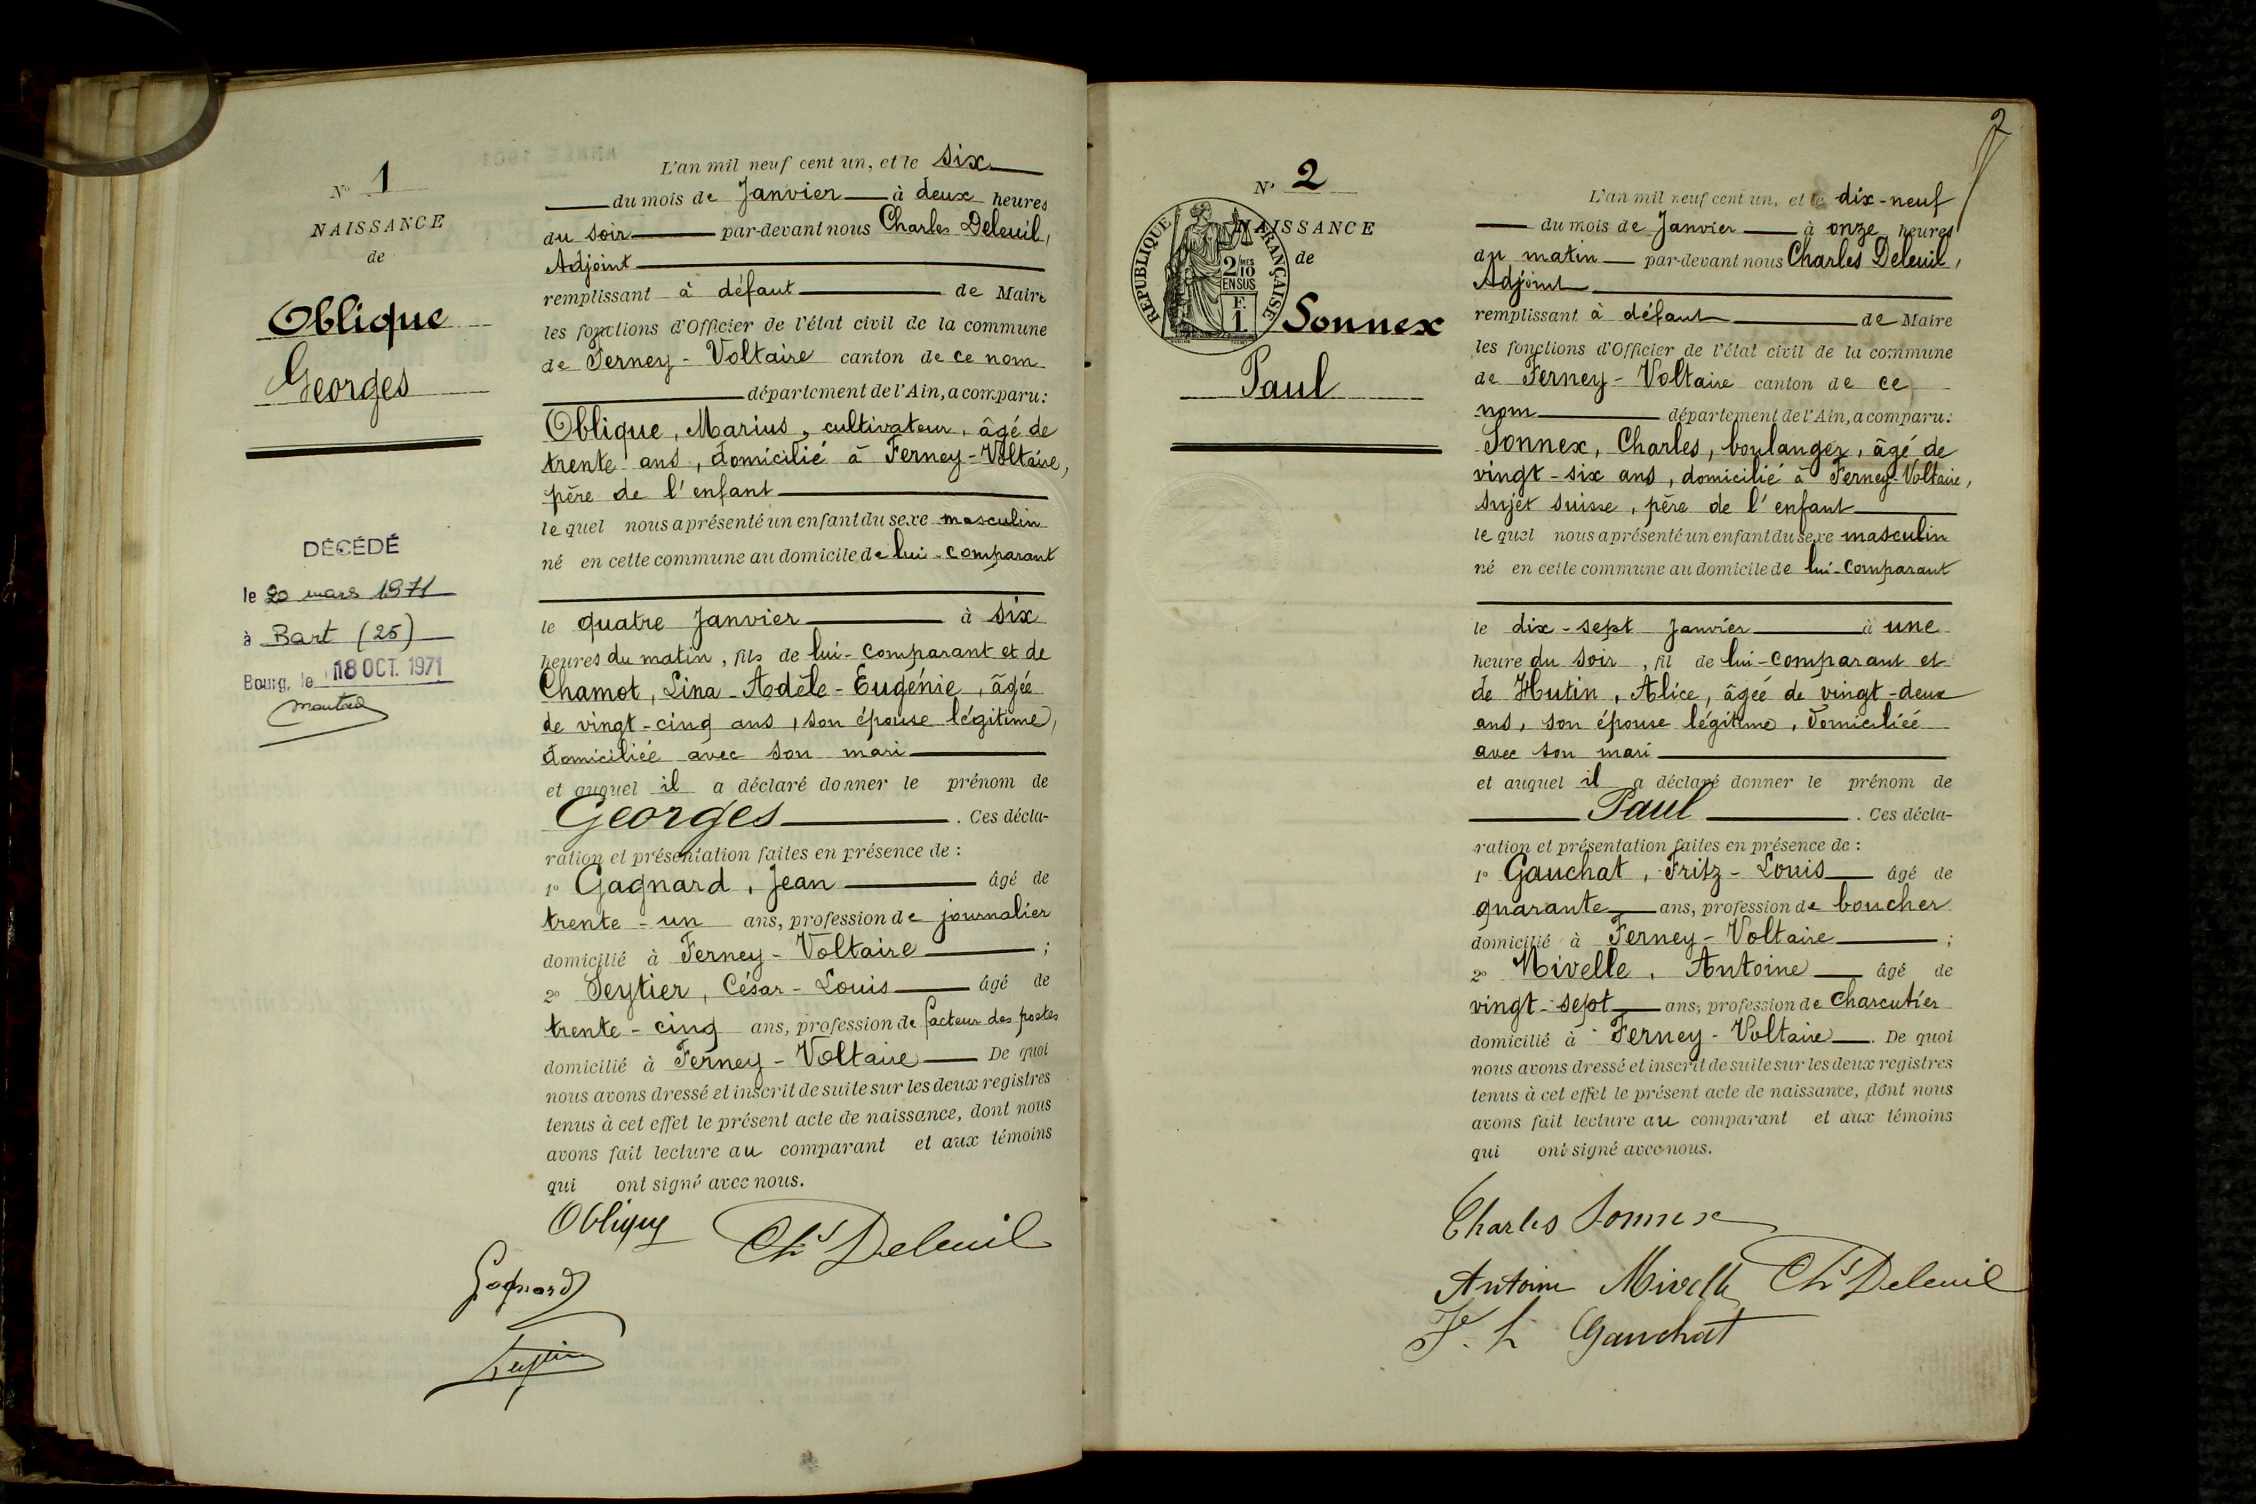 N° 1
NAISSANCE
de
Oblique
Georges
DÉCÉDÉ
le 20 mars 1971
à Bart (25)
Bourg, le 18 OCT. 1971
L'an mil neuf cent un, et le six
du mois de Janvier à deux heures
du soir par-devant nous Charles Deleuil,
Adjoint
remplissant à défaut de Maire
les fonctions d'Officier de l'état civil de la commune
de Ferney-Voltaire canton de ce nom
département de l'Ain, a comparu:
Oblique, Marius, cultivateur, âgé de
trente ans, domicilié à Ferney-Voltaire,
père de l'enfant
lequel nous a présenté un enfant du sexe masculin
né en cette commune au domicile de lui-comparant
le quatre Janvier à six
heures du matin, fils de lui-comparant et de
Chamot, Lina-Adèle-Eugénie, âgée
de vingt-cinq ans, son épouse légitime,
domiciliée avec son mari
et auquel il a déclaré donner le prénom de
Georges. Ces décla-
ration et présentation faites en présence de :
1° Gagnard, Jean âgé de
trente-un ans, profession de journalier
domicilié à Ferney-Voltaire ;
2° Seytier, César-Louis âgé de
trente-cinq ans, profession de facteur des postes
domicilié à Ferney-Voltaire De quoi
nous avons dressé et inscrit de suite sur les deux registres
tenus à cet effet le présent acte de naissance, dont nous
avons fait lecture au comparant et aux témoins
qui ont signé avec nous.
Oblique Chs Deleuil
Gagnard
2
N° 2
NAISSANCE
de
RÉPUBLIQUE FRANÇAISE
2/10 EN SUS
F. 1
Sonnex
Paul
L'an mil neuf cent un, et le dix-neuf
du mois de Janvier à onze heures
du matin par-devant nous Charles Deleuil,
Adjoint
remplissant à défaut de Maire
les fonctions d'Officier de l'état civil de la commune
de Ferney-Voltaire canton de ce
nom département de l'Ain, a comparu:
Sonnex, Charles, boulanger, âgé de
vingt-six ans, domicilié à Ferney-Voltaire,
sujet suisse, père de l'enfant
lequel nous a présenté un enfant du sexe masculin
né en cette commune au domicile de lui-comparant
le dix-sept Janvier à une
heure du soir, fil de lui-comparant et
de Hutin, Alice, âgée de vingt-deux
ans, son épouse légitime, domiciliée
avec son mari
et auquel il a déclaré donner le prénom de
Paul. Ces décla-
ration et présentation faites en présence de :
1° Gauchat, Fritz-Louis âgé de
quarante ans, profession de boucher
domicilié à Ferney-Voltaire ;
2° Mivelle, Antoine âgé de
vingt-sept ans, profession de charcutier
domicilié à Ferney-Voltaire. De quoi
nous avons dressé et inscrit de suite sur les deux registres
tenus à cet effet le présent acte de naissance, dont nous
avons fait lecture au comparant et aux témoins
qui ont signé avec nous.
Charles Sonnex
Antoine Mivelle Chs Deleuil
F. L Gauchat